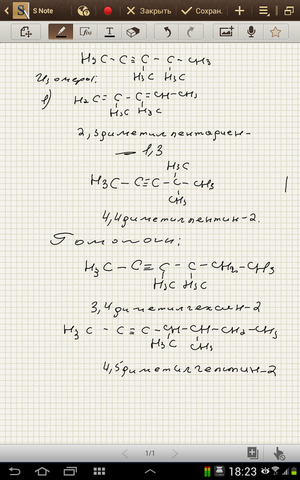 S Note
Закрыть
Сохран.
H₃C – C ≡ C – C – CH₃
H₃C H₃C
Изомеры:
1) H₂C = C – C = CH – CH₃
H₃C H₃C
2,3диметилпентадиен-
– 1,3
H₃C
H₃C – C ≡ C – C – CH₃
CH₃
4,4диметилпентин-2.
Гомологи:
H₃C – C ≡ C – C – CH₂ – CH₃
H₃C H₃C
3,4диметилгексин-2
H₃C – C ≡ C – CH – CH – CH₂ – CH₃
H₃C CH₃
4,5диметилгептин-2
1/1
18:23